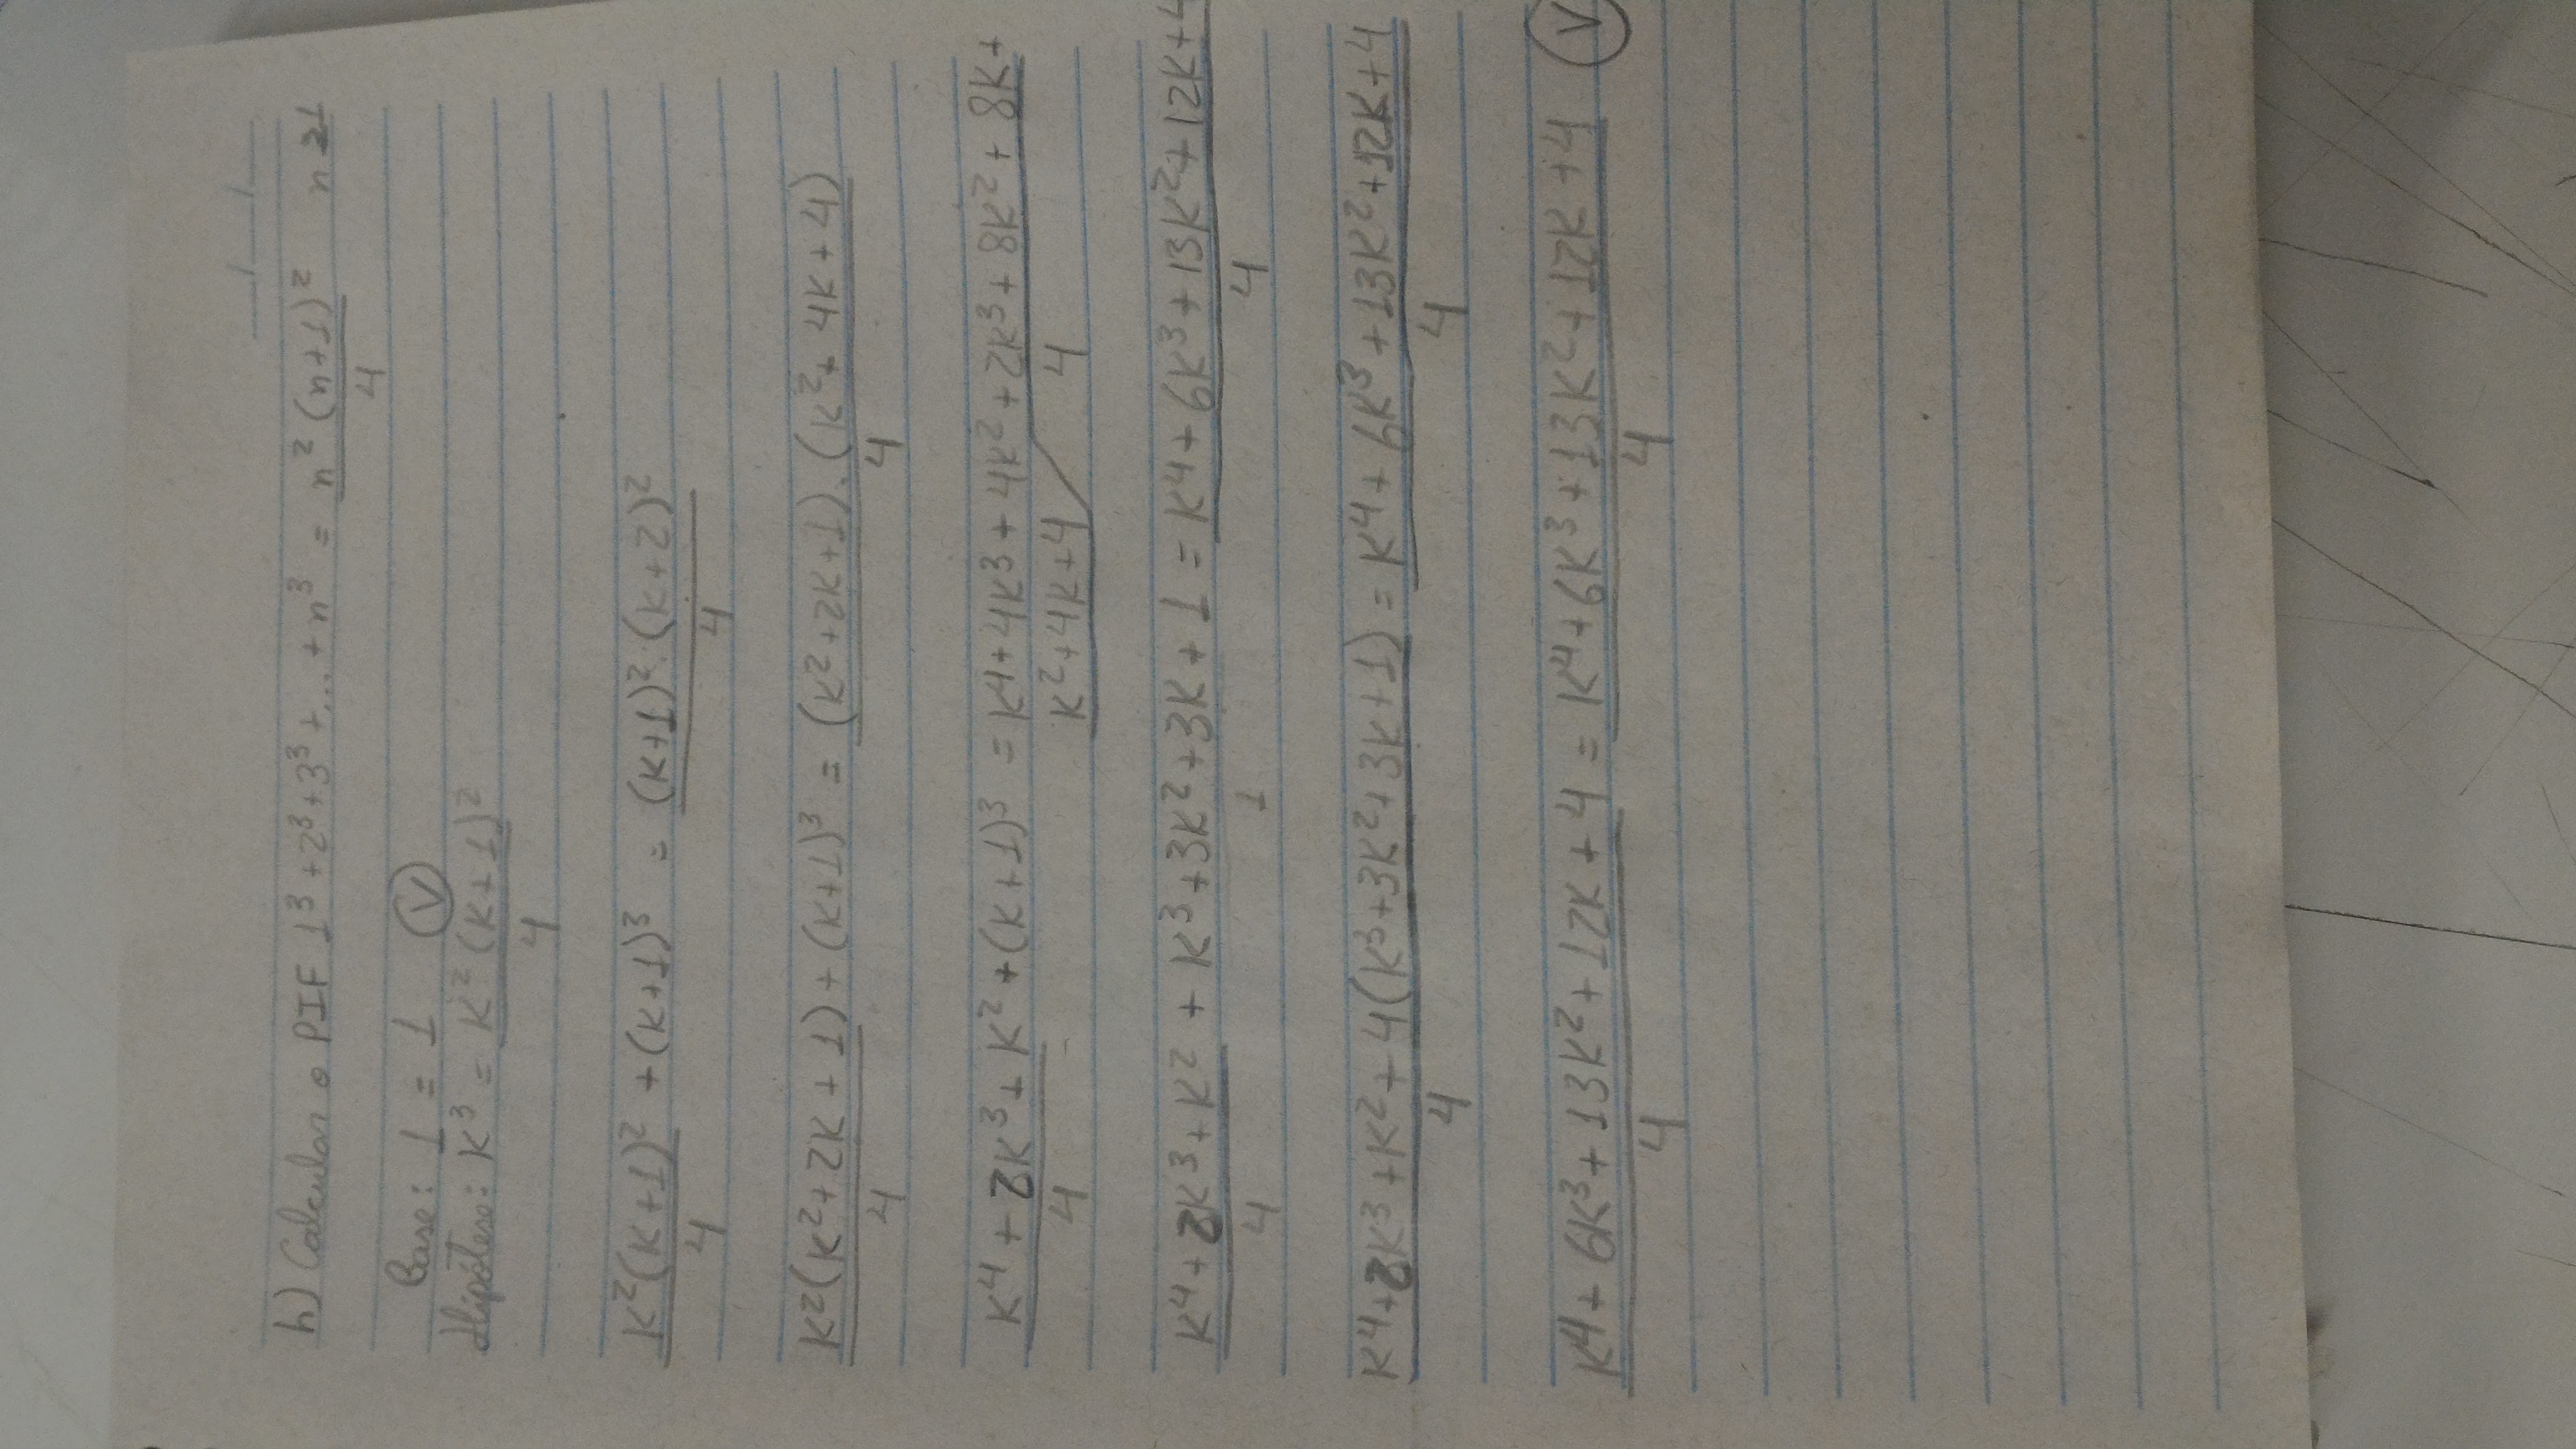 h) Calcular o PIF 1³ + 2³ + 3³ + ... + n³ = n² (n+1)² n ≥ 1
4
Base: 1 = 1 V
Hipótese: K³ = K² (K+1)²
4
K²(K+1)² + (K+1)³ = (K+1)² . (K+2)²
4 4
K²(K²+2K+1) + (K+1)³ = (K²+2K+1) . (K²+4K+4)
4 4
K⁴ + 2K³ + K² + (K+1)³ = K⁴ + 4K³ + 4K² + 2K³ + 8K² + 8K +
4 K² + 4K + 4 4
K⁴ + 2K³ + K² + K³ + 3K² + 3K + 1 = K⁴ + 6K³ + 13K² + 12K + 4
4 1 4
K⁴ + 2K³ + K² + 4(K³ + 3K² + 3K + 1) = K⁴ + 6K³ + 13K² + 12K + 4
4 4
K⁴ + 6K³ + 13K² + 12K + 4 = K⁴ + 6K³ + 13K² + 12K + 4 V
4 4